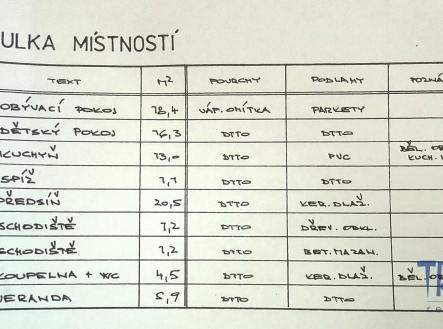 ULKA MÍSTNOSTÍ
TEXT M² POVRCHY PODLAHY POZNÁ
OBÝVACÍ POKOJ 18,4 VÁP. OMÍTKA PARKETY
DĚTSKÝ POKOJ 16,3 DTTO DTTO
KUCHYŇ 13,0 DTTO PVC BĚL. OB KUCH.
SPÍŽ 1,1 DTTO DTTO
PŘEDSÍŇ 20,5 DTTO KER. DLAŽ.
SCHODIŠTĚ 1,2 DTTO DŘEV. OBKL.
SCHODIŠTĚ 1,2 DTTO BET. MAZAN.
KOUPELNA + WC 4,5 DTTO KER. DLAŽ. BĚL.
VERANDA 5,9 DTTO DTTO